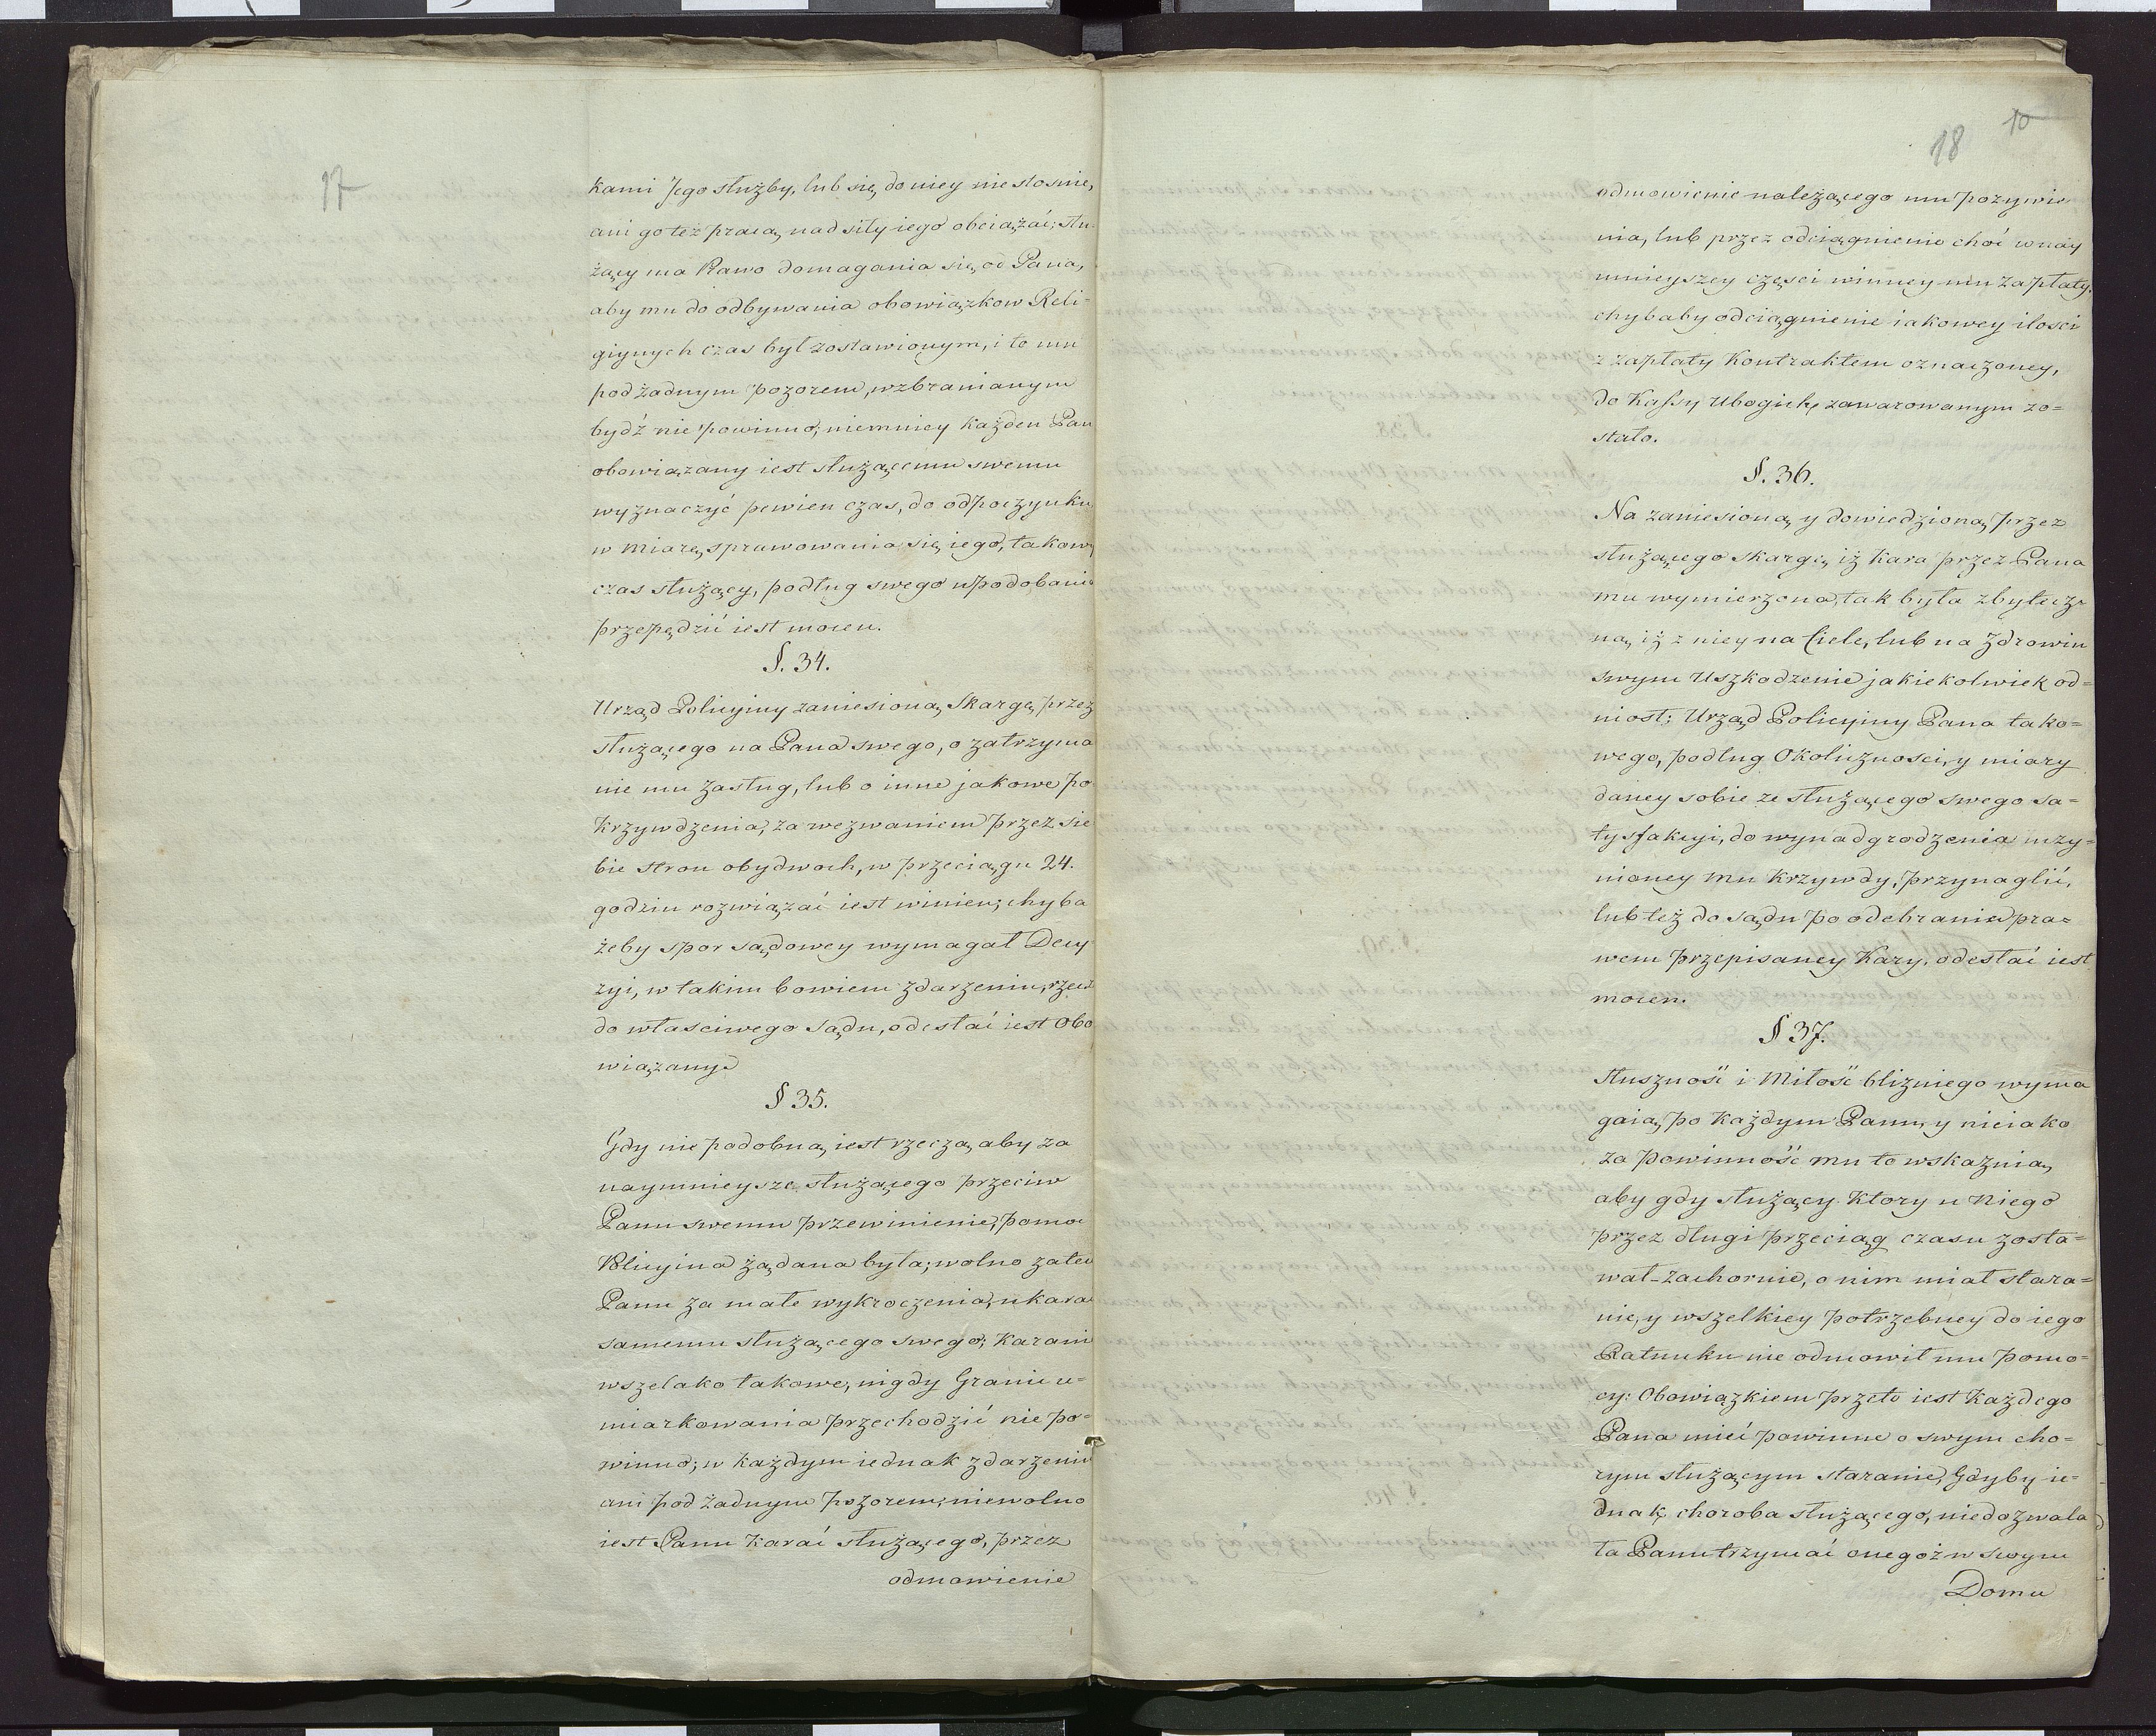 17
kami Jego służby, lub się do niey niestosuie,
ani go też pracą nad siły iego obciążać; słu-
żący ma Prawo domagania się od Pana,
aby mu do odbywania obowiązkow Reli-
giynych czas był zostawionym, i to mu
pod żadnym pozorem, wzbranianym
bydź nie powinno; niemniey każden Pan
obowiązany iest służącemu swemu
wyznaczyć pewien czas, do odpoczynku
w miarę sprawowania się iego, takowy
czas służący, podług swego upodobania
przepędzić iest mocen.
§. 34.
Urząd Policyiny zaniesioną Skargę przez
służącego na Pana swego, o zatrzyma
nie mu zasług, lub o inne jakowe po
krzywdzenia, za wezwaniem przez sie
bie stron obydwoch, w przeciągu 24.
godzin rozwiązać iest winien; chyba
żeby spor sądowey wymagał Decy
zyi, w takim bowiem zdarzeniu, rzecz
do własciwego Sądu, odesłać iest Obo
wiązany.
§ 35.
Gdy nie podobną iest rzeczą, aby za
naymnieysze służącego przeciw
Panu swemu przewinienie, pomoc
Policyina żądana była; wolno zatem
Panu za małe wykroczenia, ukarać
samemu służącego swego; karanie
wszelako takowe, nigdy Granic u=
miarkowania przechodzić nie po=
winno; w każdym iednak zdarzeniu
ani pod żadnym pozorem; niewolno
iest Panu karać służącego, przez
odmowienie
18 10
odmowienie należącego mu pożywie
nia, lub przez odciągnienie choć w nay
mnieyszey częsci winney mu zapłaty.
chybaby odciągnienie iakowey ilosci
z zapłaty Kontraktem oznaczoney,
do Kassy Ubogich zawarowanym zo=
stało.
§. 36.
Na zaniesioną y dowiedzioną przez
służącego skargę, iż kara przez Pana
mu wymierzona, tak była zbytecz-
na, iż z niey na Ciele, lub na zdrowiu
swym Uszkodzenie jakiekolwiek od=
niosł; Urząd Policyiny Pana tako=
wego, podług Okolicznosci, y miary
daney sobie ze służącego swego sa=
tysfakcyi, do wynadgrodzenia uczy=
nioney mu krzywdy, przynaglić,
lub też do sądu po odebranie pra=
wem przepisaney Kary, odesłać iest
mocen.
§ 37.
Słuszność i Miłość bliźniego wyma
gaią po każdym Panu, y nieiako
za powinność mu to wskazuią,
aby gdy służący ktory u niego
przez długi przeciąg czasu zosta=
wał-zachoruie, o nim miał stara=
nie, y wszelkiey potrzebney do iego
Ratunku nie odmowił mu pomo=
cy: Obowiązkiem przeto iest każdego
Pana mieć powinne o swym cho=
rym służącym staranie, Gdyby ie=
dnak, choroba służącego, niedozwala
ła Panu trzymać onegoż w swym
Domu